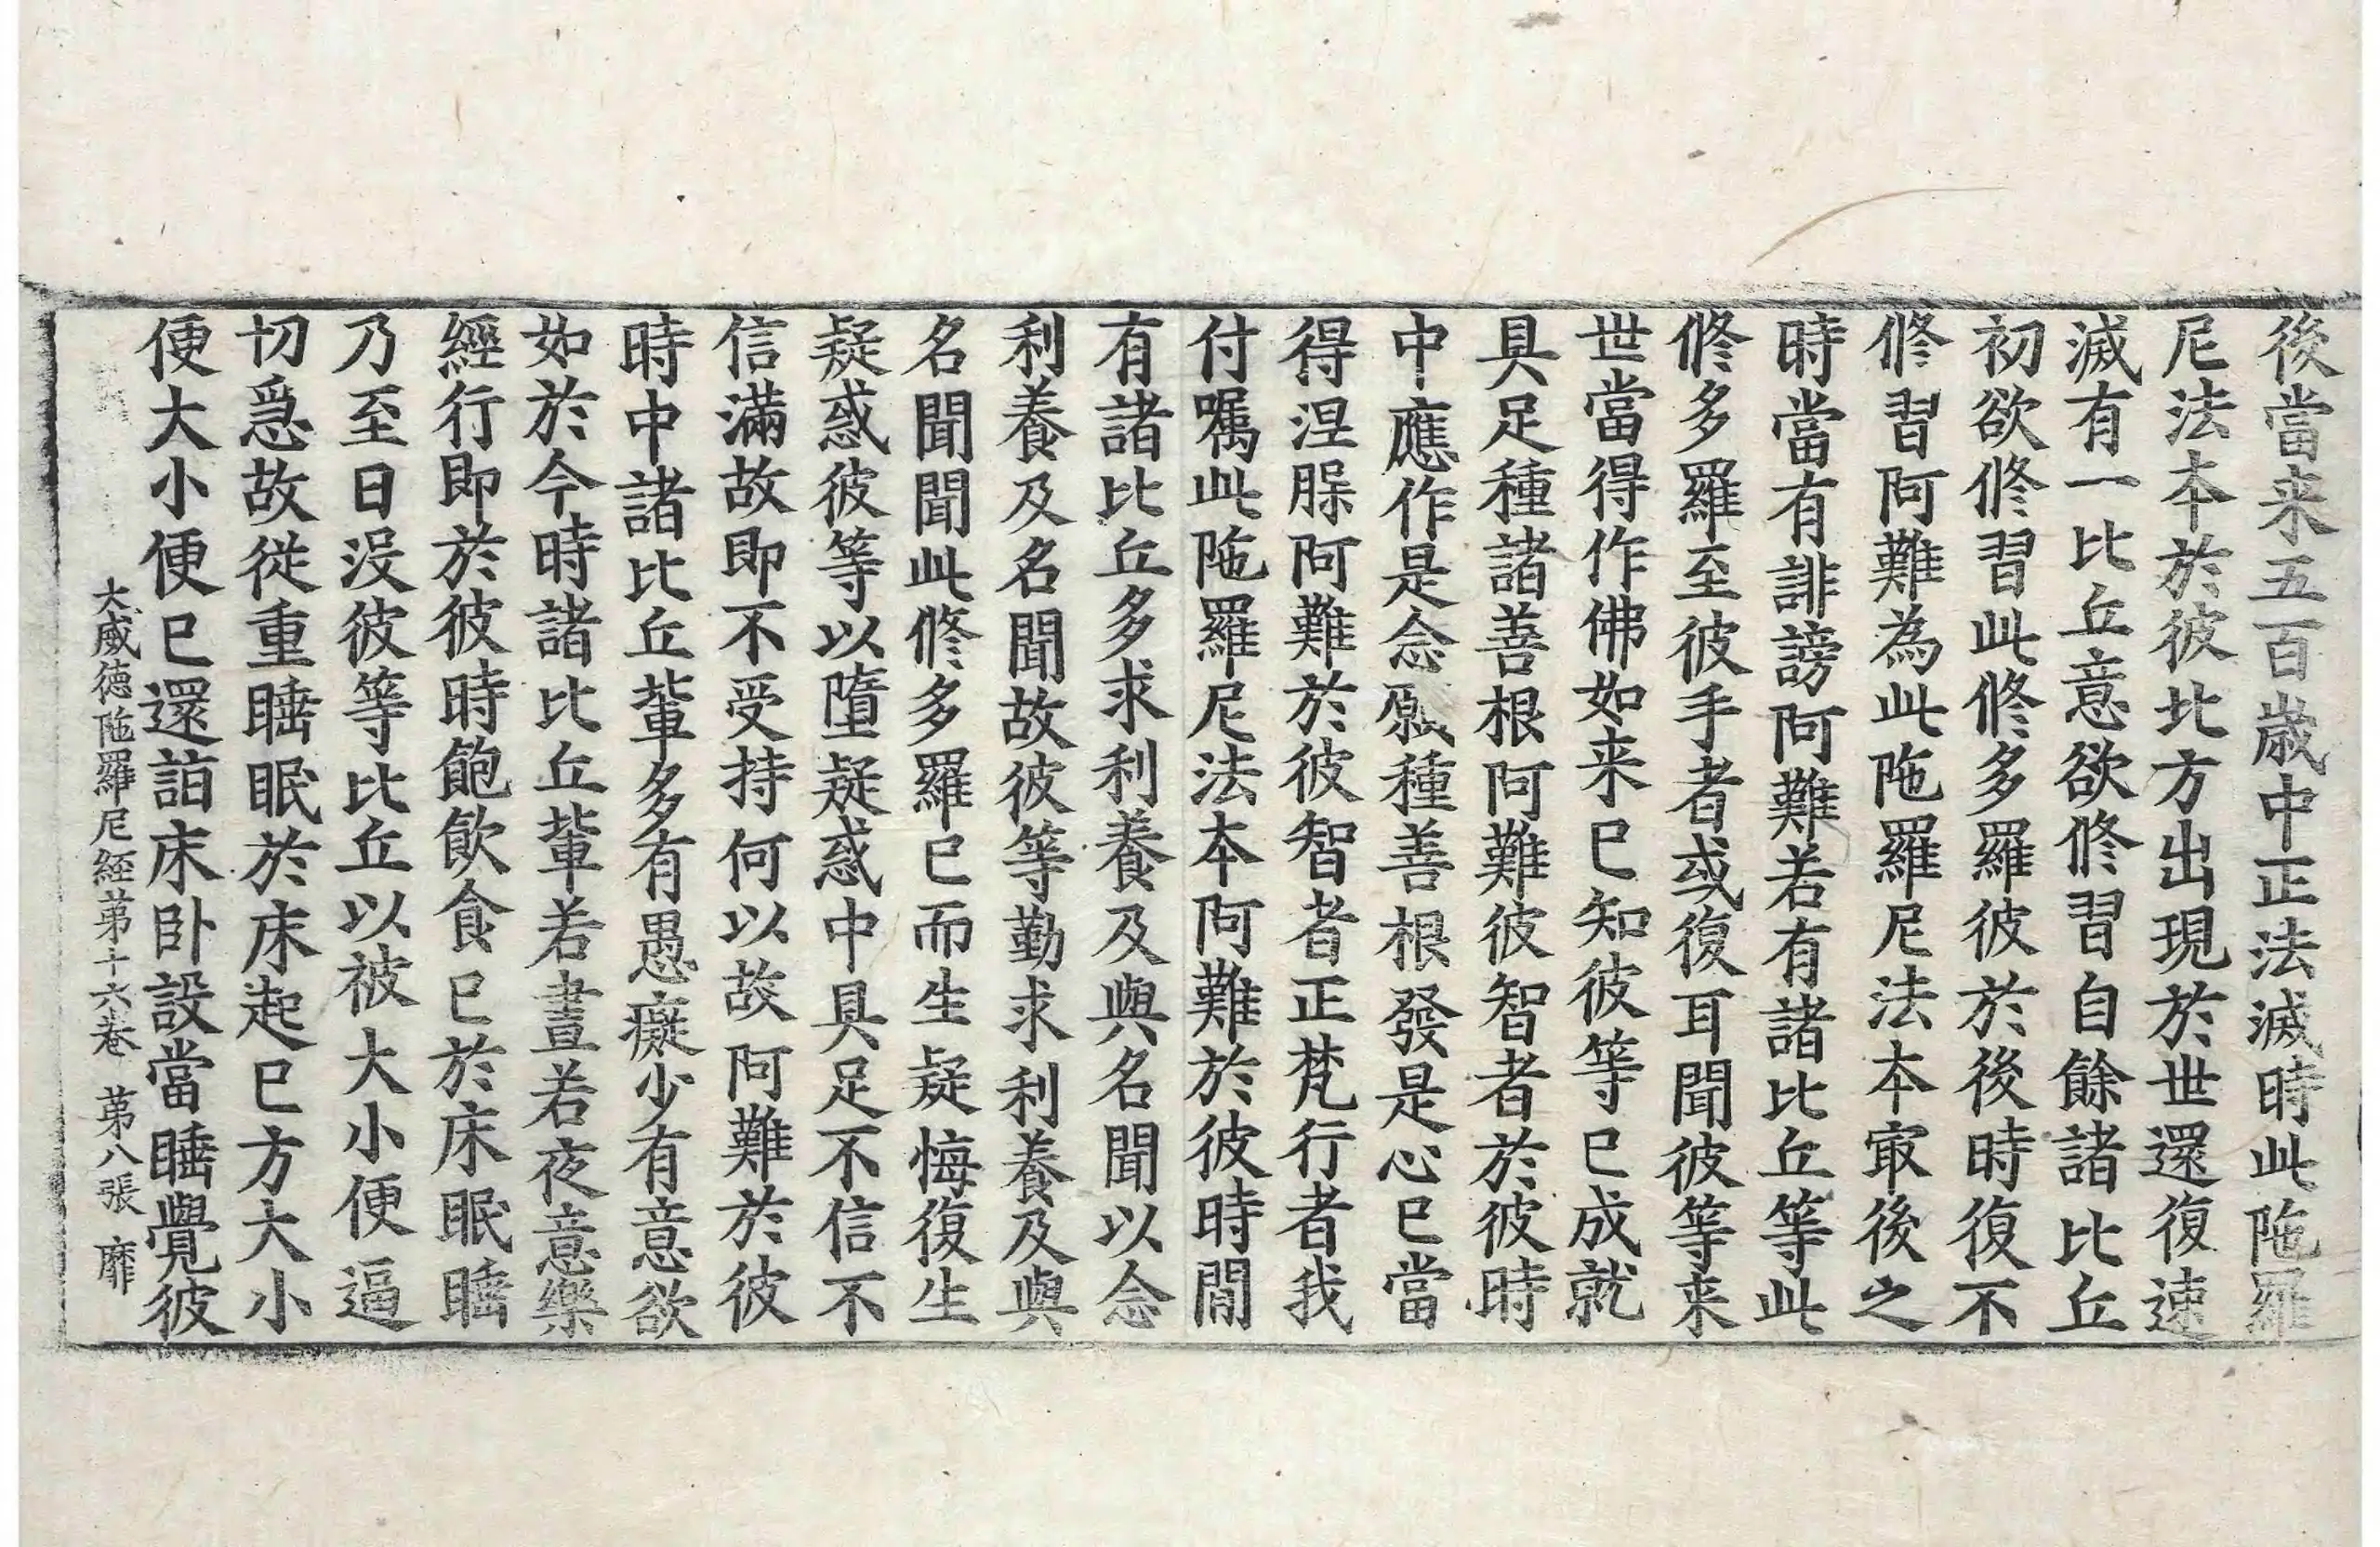 後當来五百歲中正法滅時此陁羅
尼法本於彼北方出現於世還復速
滅有一比丘意欲修習自餘諸比丘
初欲修習此修多羅彼於後時復不
修習阿難為此陁羅尼法本㝡後之
時當有誹謗阿難若有諸比丘等此
修多羅至彼手者或復耳聞彼等来
世當得作佛如来已知彼等已成就
具足種諸善根阿難彼智者於彼時
中應作是念願種善根發是心已當
得涅槃阿難於彼智者正梵行者我
付嘱此陁羅尼法本阿難於彼時間
有諸比丘多求利養及與名聞以念
利養及名聞故彼等勤求利養及與
名聞聞此修多羅已而生疑悔復生
疑惑彼等以墮疑惑中具足不信不
信滿故即不受持何以故阿難於彼
時中諸比丘軰多有愚癡少有意欲
如於今時諸比丘軰若晝若夜意樂
經行即於彼時飽飲食已於床眠睡
乃至日没彼等比丘以被大小便逼
切急故從重睡眠於床起已方大小
便大小便已還詣床卧設當睡覺彼
大威德陁羅尼經苐十六卷 苐八張 靡